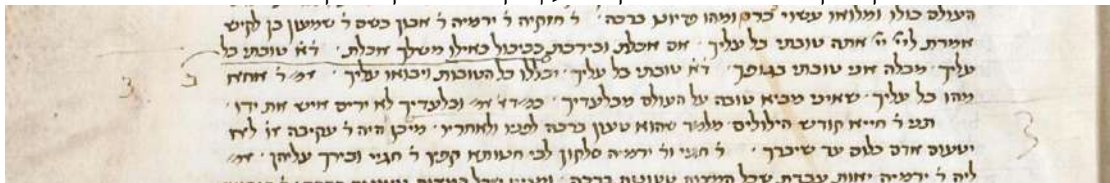 העולם כולו ומלואו עשוי כרם ומהו פדיונו ברכה ר׳ חזקיה ר׳ ירמיה ר׳ אבון בשם ר׳ שמעון בן לקיש
אמרת ליי׳ יי׳ אתה טובתי בל עליך אם אכלת ובירכת כביכול כאילו משלך אכלת ד׳א׳ טובתי בל
עליך מבלה אני טובתי בגופך ד׳א׳ טובתי בל עליך יבללו כל הטובות ויבואו עליך אמ׳ ר׳ אחא
מהו בל עליך שאיני מביא טובה על העולם מבלעדיך כמ׳ד׳א׳ ובלעדיך לא ירים איש את ידו
תני ר׳ חייא קודש הילולים מלמד שהוא טעון ברכה לפניו ולאחריו מיכן היה ר׳ עקיבה או׳ לא
יטעום אדם כלום עד שיברך ר׳ חגיי ור׳ ירמיה סלקון לבי חנוותא קפץ ר׳ חגיי ובירך עליהן אמ׳
ליה ר׳ ירמיה יאות עבדת שכל המצות טעונות ברכה ומניין שכל המצות טעונות ברכה